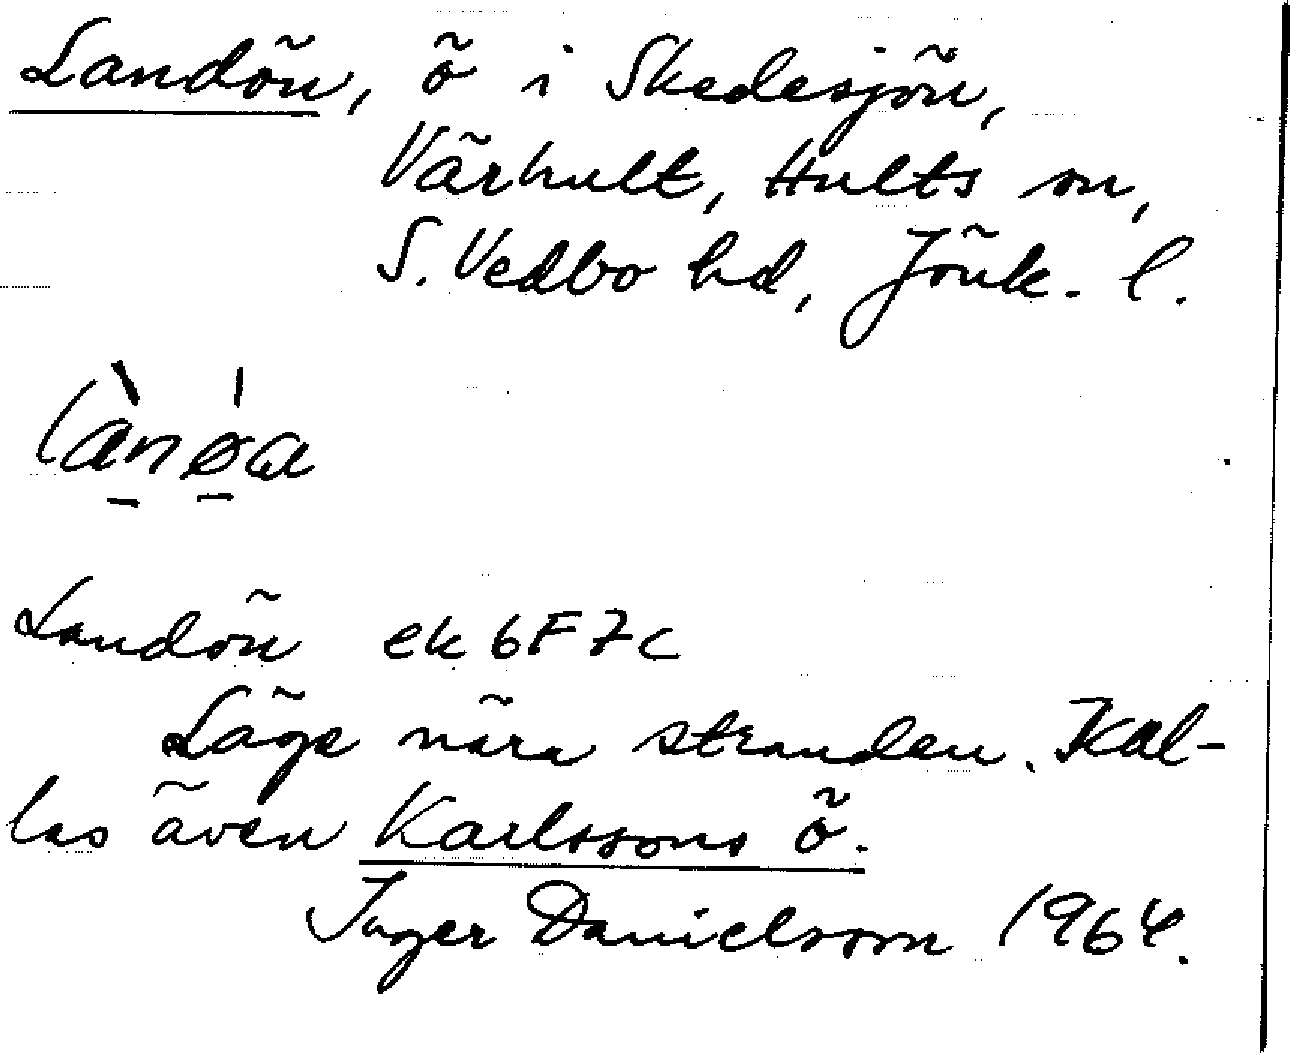 Landön, ö i Skedesjön,
Värhult, Hults sn,
S. Vedbo hd, Jönk. l.
làn ǿa
Landön ek 6F7c
Läge nära stranden. Kal-
las även Karlssons ö.
Inger Danielsson 1964.